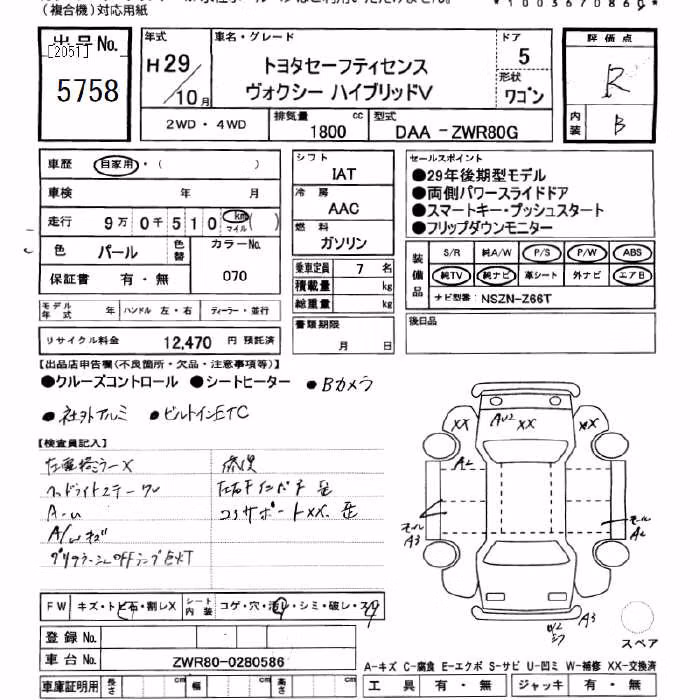 （複合機）対応用紙
出品No.
[2051]
5758
年式
H29/10月
車名・グレード
トヨタセーフティセンス
ヴォクシー ハイブリッドV
ドア
5
形状
ワゴン
評価点
R
内装
B
2WD・4WD
排気量
1800 cc
型式
DAA-ZWR80G
車歴 自家用・( )
車検 年 月
走行 9万0千510 km マイル ( )
色 パール 色替 カラーNo.
保証書 有・無 070
モデル年式 年 ハンドル 左・右 ディーラー・並行
リサイクル料金 12,470 円 預託済
シフト
IAT
冷房
AAC
燃料
ガソリン
乗車定員 7 名
積載量 kg
総重量 kg
書類期限
月 日
セールスポイント
●29年後期型モデル
●両側パワースライドドア
●スマートキー・プッシュスタート
●フリップダウンモニター
装備品
S/R 純A/W P/S P/W ABS
純TV 純ナビ 革シート 外ナビ エアB
ナビ型番: NSZN-Z66T
後日品
【出品店申告欄(不良箇所・欠品・注意事項等)】
●クルーズコントロール ●シートヒーター ●Bカメラ
●社外アルミ ●ビルトインETC
【検査員記入】
ヘッドライトスチール
A-u
修復
コアサポートXX.
XX XX XX
A2
モール
A3
モール
A2
A3
スペア
FW キズ・トビ石・割レX シート内装 コゲ・穴・汚レ・シミ・破レ・スレ
登録No.
車台No. ZWR80-0280586
車庫証明用 長さ cm 幅 cm 高さ cm
A-キズ C-腐食 E-エクボ S-サビ U-凹ミ W-補修 XX-交換済
工具 有・無 ジャッキ 有・無